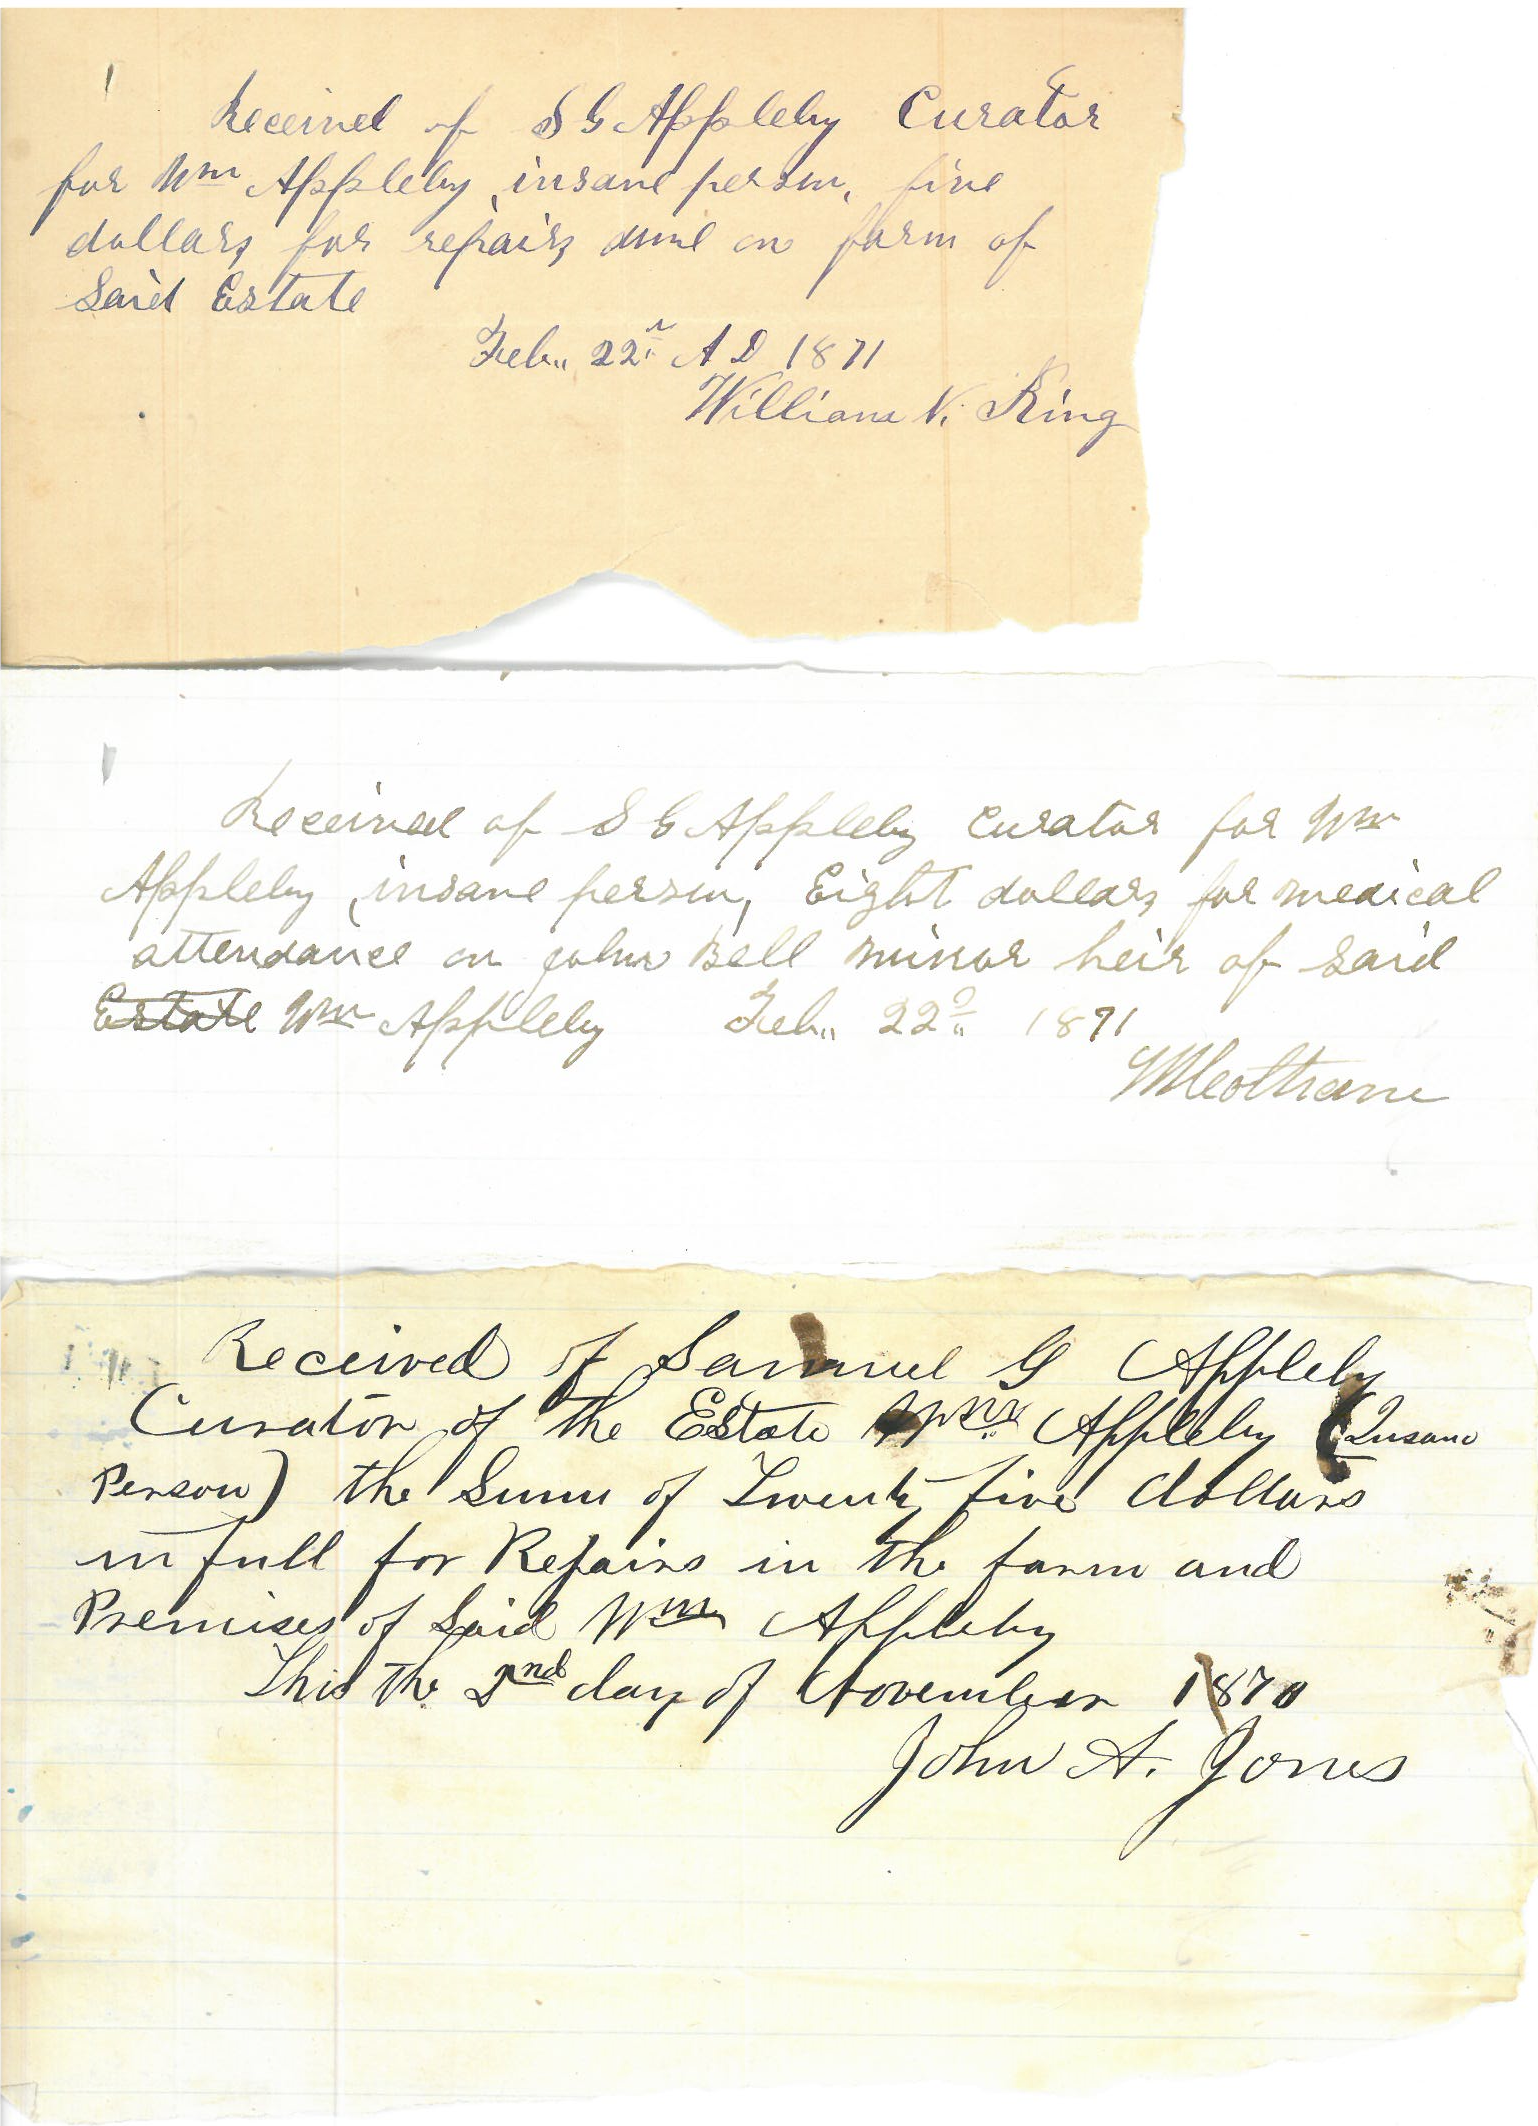 Received of S G Appleby Curator
for Wm Appleby, insane person, five
dollars for repairs done on farm of
Said Estate
Feb,, 22d A D 1871
William N. King
Received of S G Appleby Curator for Wm
Appleby, insane person, Eight dollars for medical
attendance on John Bell minor heir of said
Estate Wm Appleby Feb,, 22d 1871
Received of Samuel G Appleby
Curator of the Estate Wm Appleby (Insane
Person) the Sum of Twenty five dollars
in full for Repairs in the farm and
Premises of Said Wm Appleby
This the 2nd day of November 1870
John A. Jones